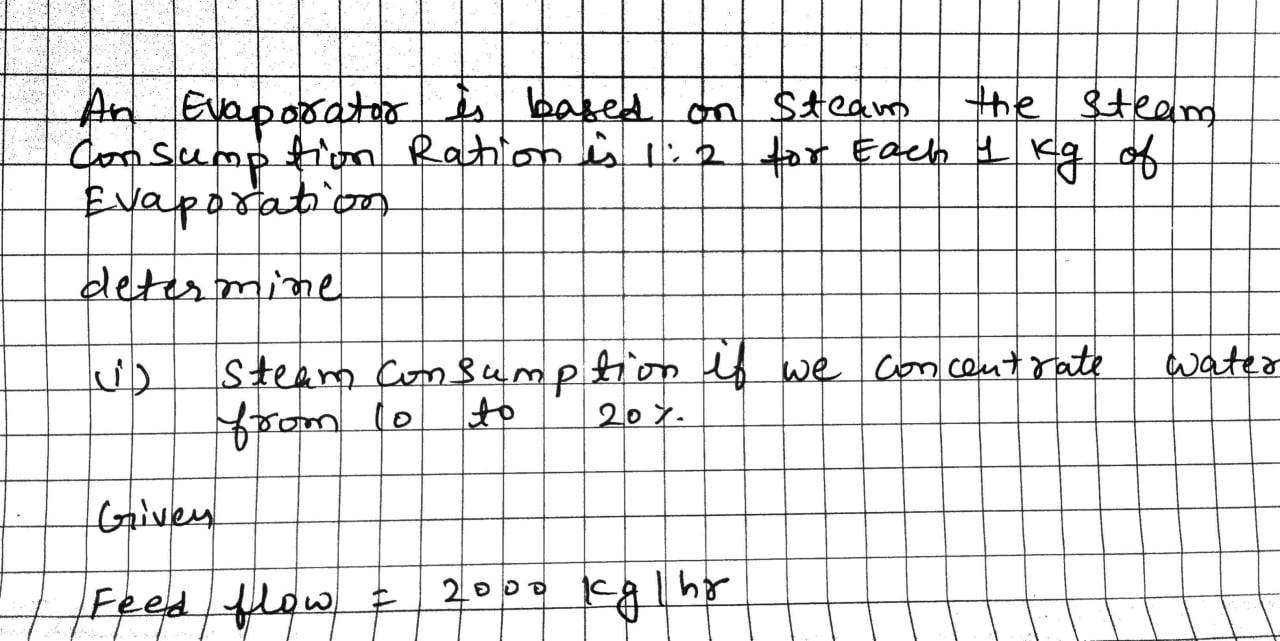 An Evaporator is based on Steam the Steam
Consumption Ration is 1:2 for Each 1 Kg of
Evaporation
determine
(i) Steam Consumption if we concentrate water
from 10 to 20%.
Given
Feed flow = 2000 Kg/hr